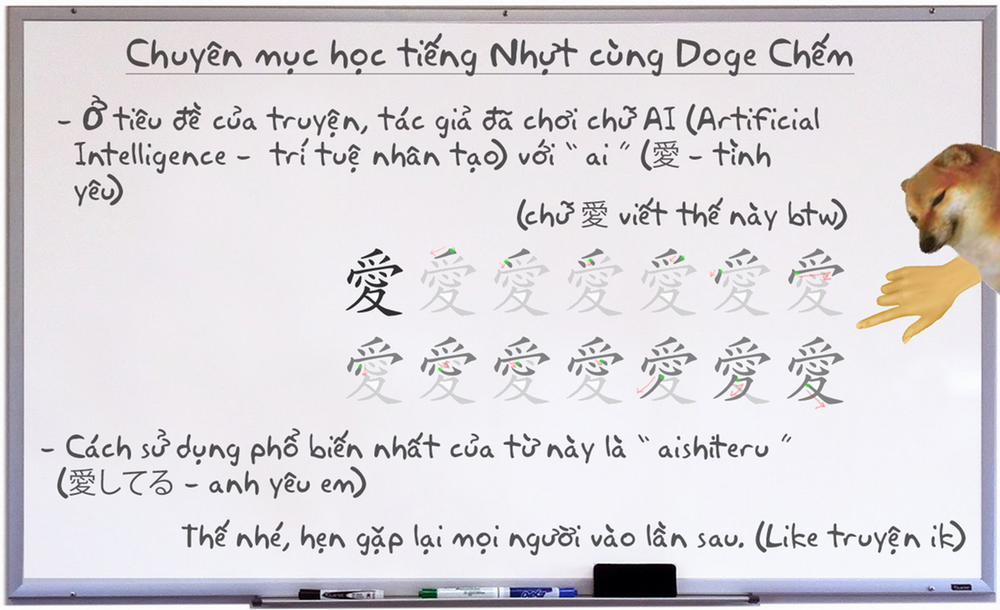 Chuyên mục học tiếng Nhựt cùng Doge Chếm
- Ở tiêu đề của truyện, tác giả đã chơi chữ AI (Artificial
Intelligence - trí tuệ nhân tạo) với "ai" (愛 - tình
yêu)
(chữ 愛 viết thế này btw)
愛 愛 愛 愛 愛 愛 愛
愛 愛 愛 愛 愛 愛 愛
- Cách sử dụng phổ biến nhất của từ này là "aishiteru"
(愛してる - anh yêu em)
Thế nhé, hẹn gặp lại mọi người vào lần sau. (Like truyện ik)